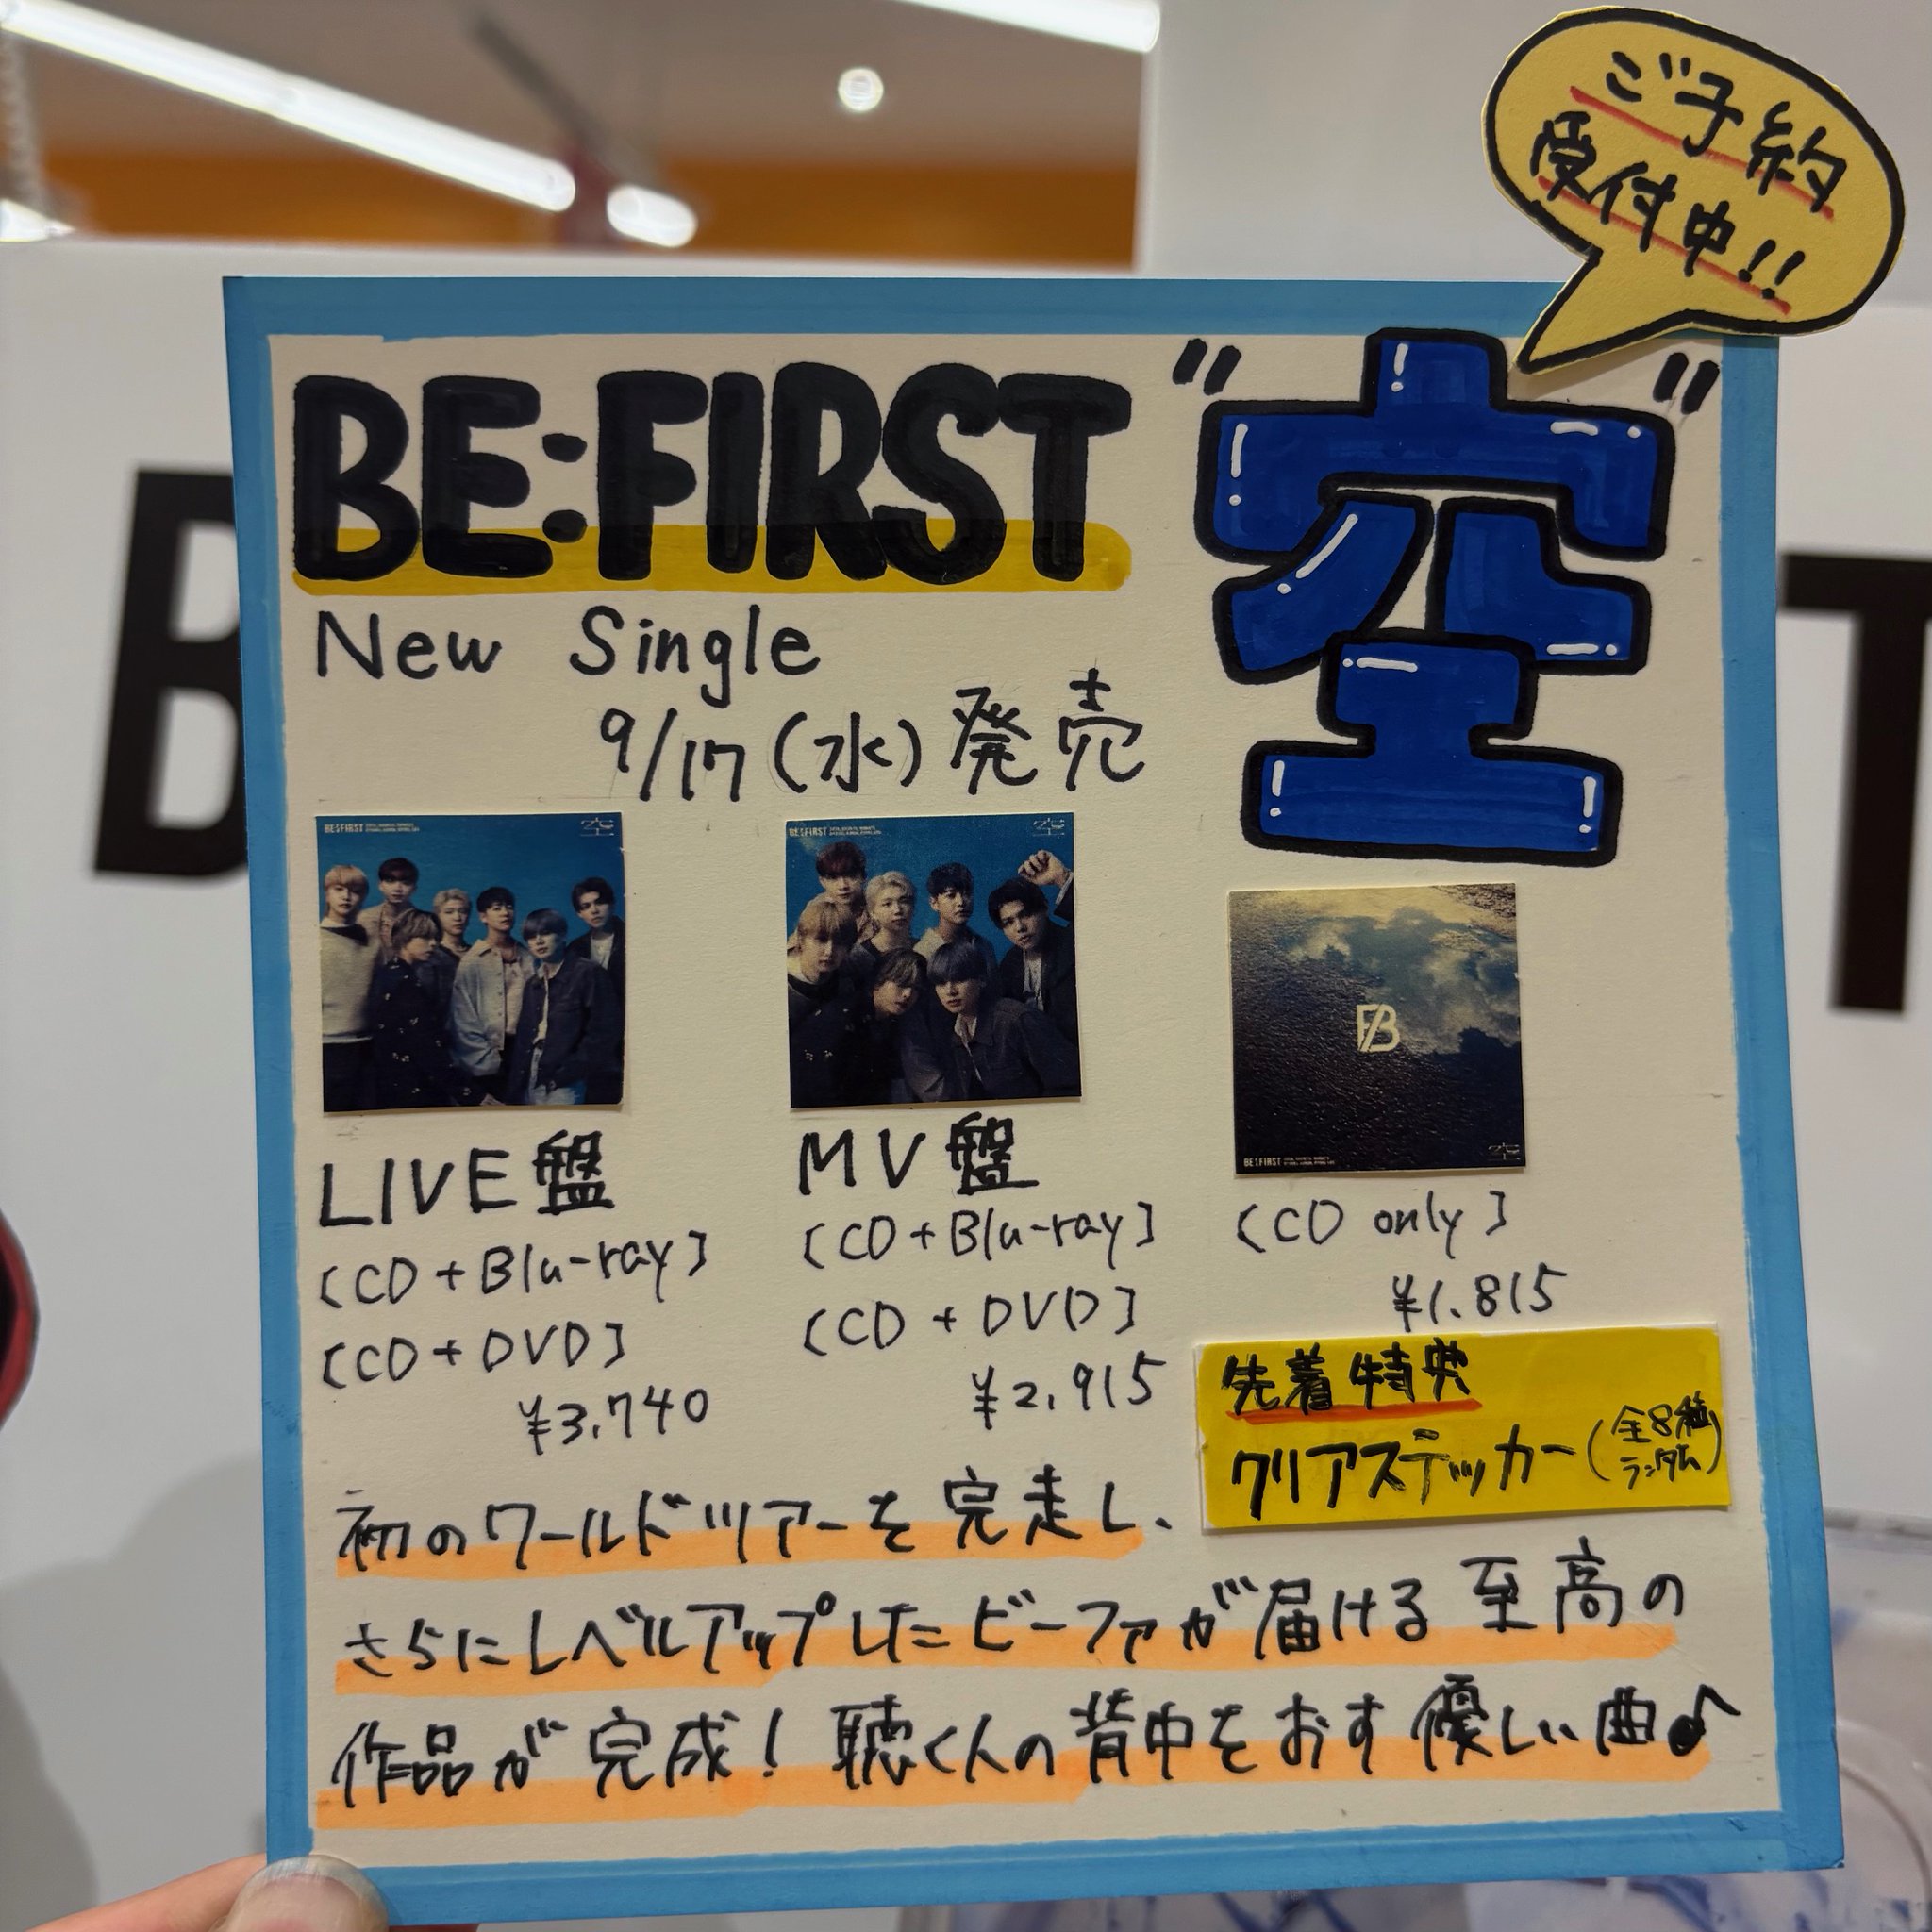 ご予約
受付中!!
BE:FIRST
"空"
New Single
9/17(水)発売
BE:FIRST
空
BE:FIRST
空
BE:FIRST
空
LIVE盤
[CD+Blu-ray]
[CD+DVD]
¥3,740
MV盤
[CD+Blu-ray]
[CD+DVD]
¥2,915
[CD only]
¥1,815
先着特典
クリアステッカー(全8種ランダム)
初のワールドツアーを完走し、
さらにレベルアップしたビーファが届ける至高の
作品が完成!聴く人の背中をおす優しい曲♪
B
T